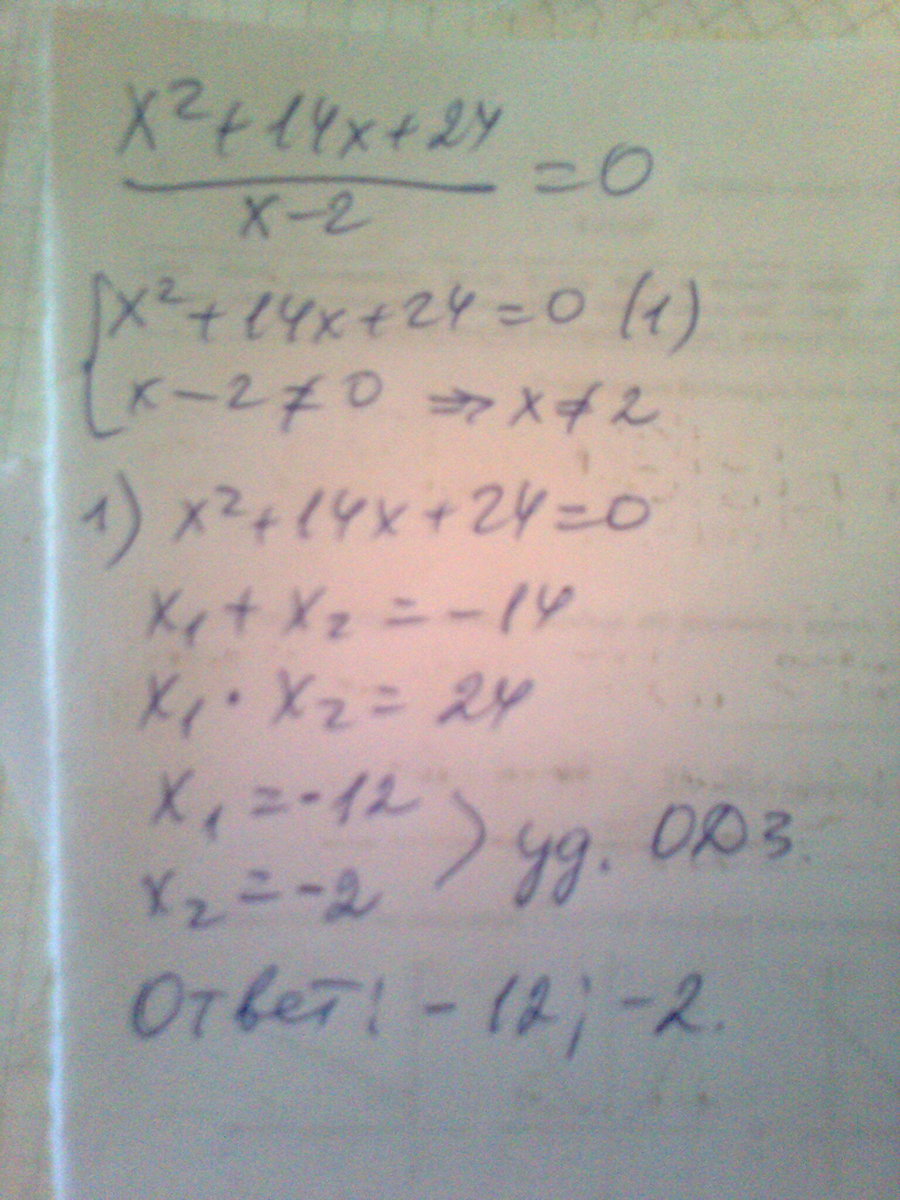 x²+14x+24
x-2
=0
{x²+14x+24=0 (1)
x-2≠0 ⇒ x≠2
1) x²+14x+24=0
x₁+x₂=-14
x₁·x₂=24
x₁=-12
x₂=-2
} уд. ОДЗ.
Ответ: -12; -2.